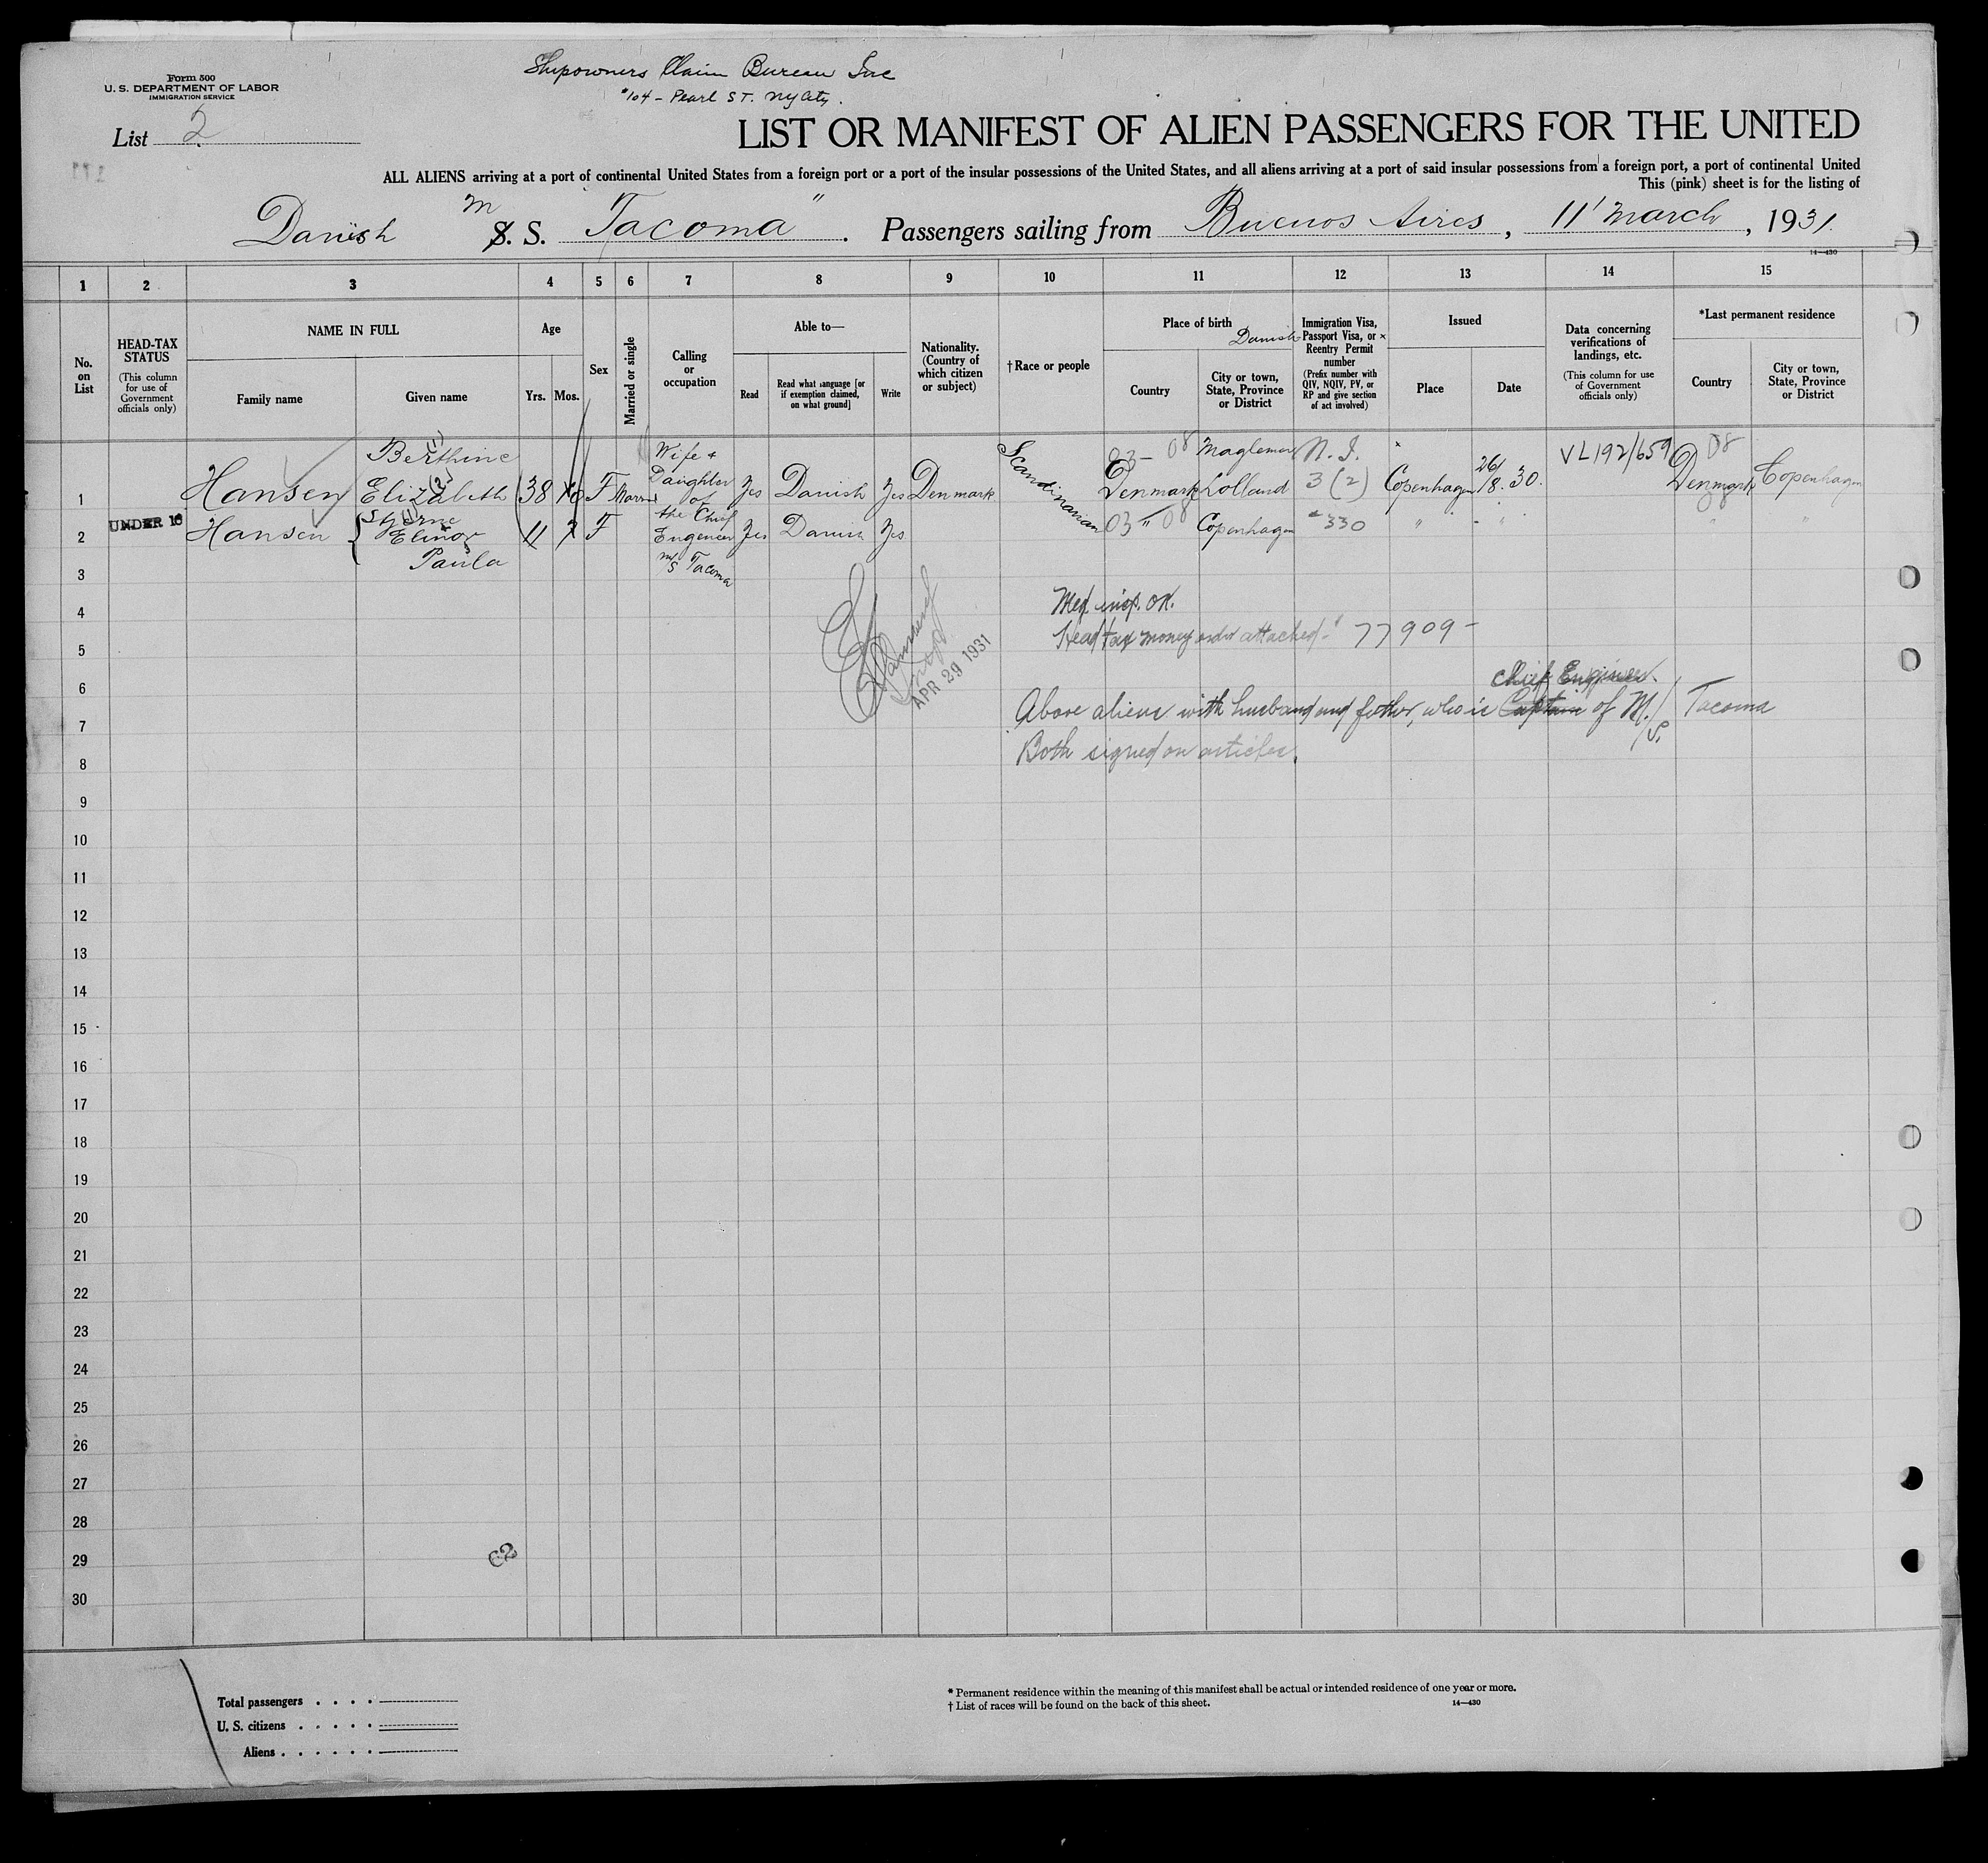 Form 500
U. S. DEPARTMENT OF LABOR
IMMIGRATION SERVICE
Shipowners Claim Bureau Inc
#104 - Pearl ST. NY City.
List 2
LIST OR MANIFEST OF ALIEN PASSENGERS FOR THE UNITED
ALL ALIENS arriving at a port of continental United States from a foreign port or a port of the insular possessions of the United States, and all aliens arriving at a port of said insular possessions from a foreign port, a port of continental United
This (pink) sheet is for the listing of
Danish M S. S. "Tacoma". Passengers sailing from Buenos Aires, 11' March, 1931.
14—430
1 2 3 4 5 6 7 8 9 10 11 12 13 14 15
No. on List
HEAD-TAX STATUS (This column for use of Government officials only)
NAME IN FULL
Family name
Given name
Age
Yrs. Mos.
Sex
Married or single
Calling or occupation
Able to—
Read
Read what language [or if exemption claimed, on what ground]
Write
Nationality. (Country of which citizen or subject)
† Race or people
Place of birth
Country
City or town, State, Province or District
Danish
Immigration Visa, Passport Visa, or Reentry Permit number (Prefix number with QIV, NQIV, PV, or RP and give section of act involved)
Issued
Place
Date
Data concerning verifications of landings, etc. (This column for use of Government officials only)
*Last permanent residence
Country
City or town, State, Province or District
Berthine 03- 08 Maglemer N. I. VL192/659 08
1 Hansen Elizabeth 38 F Marr Wife + Daughter of the Chief Engeneer M/S Tacoma Yes Danish Yes Denmark Scandinavian Denmark Lolland 3 (2) Copenhagen 26/8. 30. Denmark Copenhagen
UNDER 16
2 Hansen Elinor Paula 11 F Yes Danish Yes 03 " 08 Copenhagen 330 " " " "
3
4 Med. insp. OK.
5 Head tax money order attached - # 77909 -
APR 29 1931
6 Chief Engineer.
7 Above aliens with husband and father, who is Captain of M/S. Tacoma
8 Both signed on articles.
9
10
11
12
13
14
15
16
17
18
19
20
21
22
23
24
25
26
27
28
29
30
62
Total passengers . . . .
U. S. citizens . . . . .
Aliens . . . . . .
* Permanent residence within the meaning of this manifest shall be actual or intended residence of one year or more.
† List of races will be found on the back of this sheet.
14—430